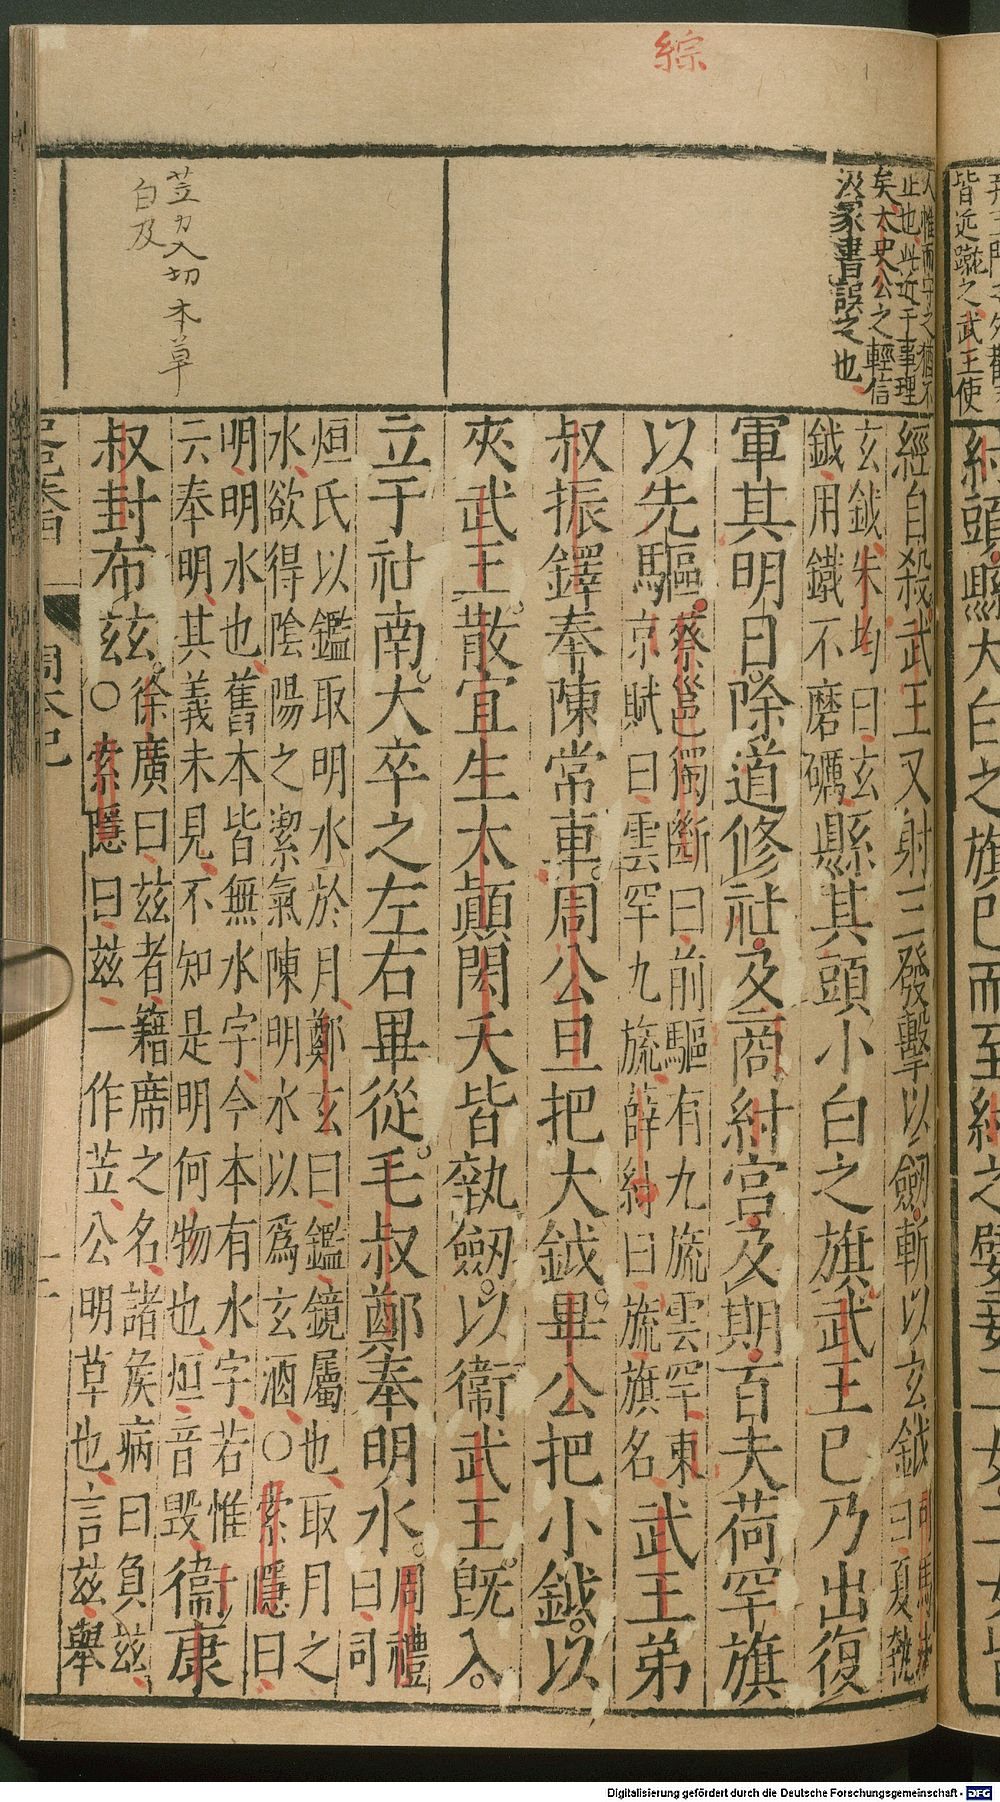 皆近蹴之武王使
紂頭縣大白之旗已而至紂之嬖妾二女二女
綜
人惟而守之猶不
止也此近于事理
矣太史公之輕信
汲冢書誤之也
經自殺武王又射三發擊以劒斬以玄鉞
司馬法
曰夏執
玄鉞宋均曰玄
鉞用鐵不磨礪
縣其頭小白之旗武王已乃出復
軍其明日。除道修社及商紂宮及期百夫荷罕旗
以先驅
蔡邕獨斷曰前驅有九旒雲罕東
京賦曰雲罕九旒薛紂曰旒旗名
武王弟
叔振鐸奉陳常車。周公旦把大鉞。畢公把小鉞。以
夾武王。散宜生太顛閎夭皆執劒。以衞武王。既入。
立于社南。大卒之左右畢從。毛叔鄭奉明水。
周禮
曰司
烜氏以鑑取明水於月鄭玄曰鑑鏡屬也取月之
水欲得陰陽之潔氣陳明水以爲玄酒○索隱曰
明明水也舊本皆無水字今本有水字若惟
云奉明其義未見不知是明何物也烜音毁
衞康
叔封布茲。
徐廣曰茲者籍席之名諸侯病曰負茲
○索隱曰茲一作苙公明草也言茲舉
苙力入切本草
白及
周本紀